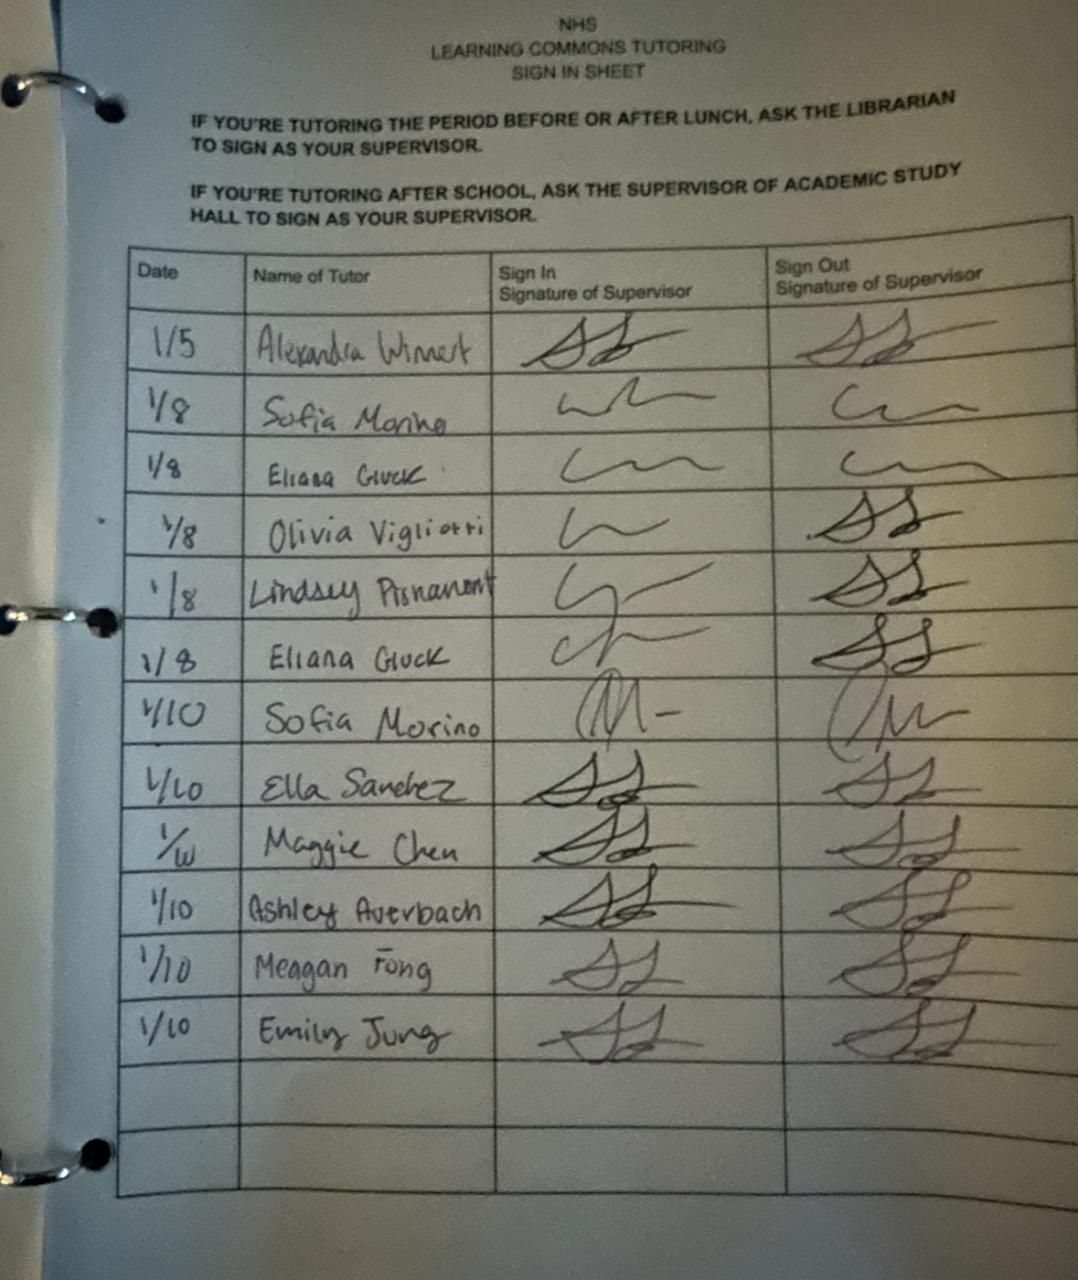 NHS
LEARNING COMMONS TUTORING
SIGN IN SHEET
IF YOU'RE TUTORING THE PERIOD BEFORE OR AFTER LUNCH, ASK THE LIBRARIAN
TO SIGN AS YOUR SUPERVISOR.
IF YOU'RE TUTORING AFTER SCHOOL, ASK THE SUPERVISOR OF ACADEMIC STUDY
HALL TO SIGN AS YOUR SUPERVISOR.
Date Name of Tutor Sign In Sign Out
Signature of Supervisor Signature of Supervisor
1/5 Alexandra
1/8 Sofia
1/8 Eliana Gluck
1/8 Olivia Vigliotti
1/8 Lindsey
1/8 Eliana Gluck
1/10 Sofia Morino
1/10 Ella Sanchez
1/10 Maggie Chen
1/10 Ashley Averbach
1/10 Meagan Fong
1/10 Emily Jung